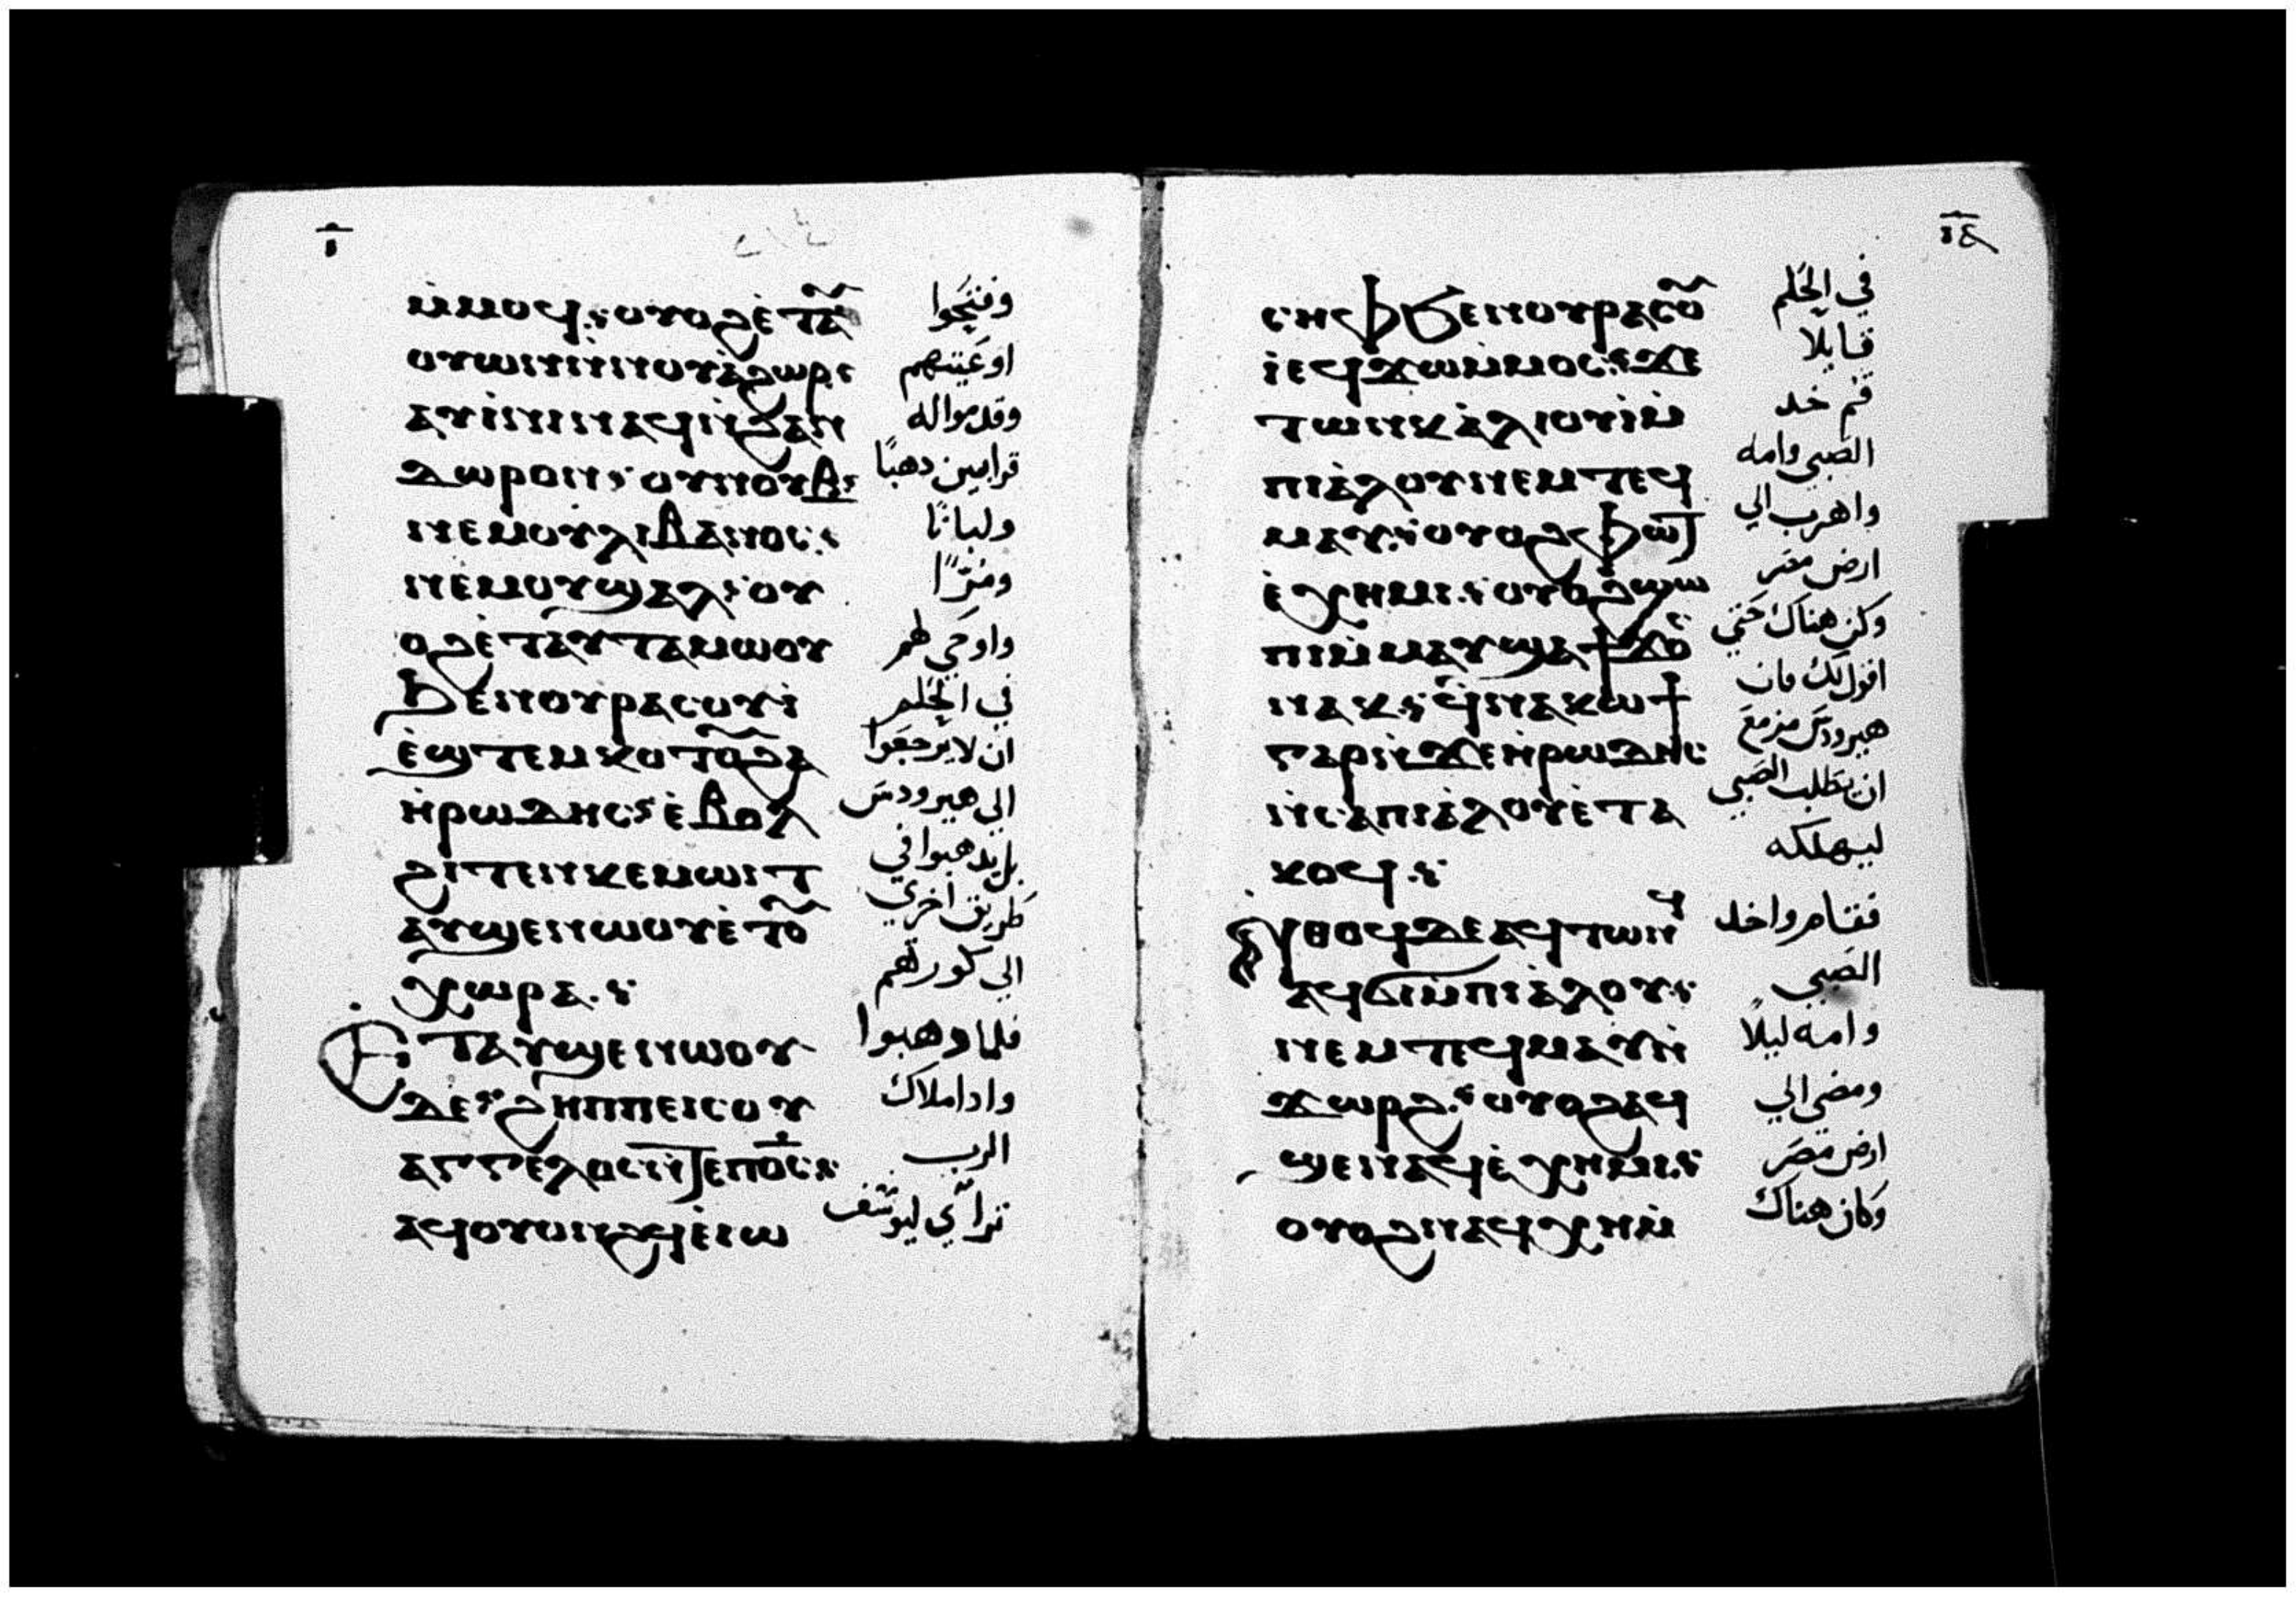 ⲓ̅
ⲙ̇ⲙⲟϥ: ⲟⲩⲟϩ ⲉ̇ⲧⲁⲩ
ⲟⲩⲱⲛ ⲛ̇ⲛⲟⲩⲁ̇ϩⲱⲣ:
ⲁⲩⲓ̇ⲛⲓ ⲛⲁϥ ⲛ̇ϩⲁⲛ
ⲇⲱⲣⲟⲛ: ⲟⲩⲛⲟⲩⲃ:
ⲛⲉⲙ ⲟⲩⲗⲓⲃⲁⲛⲟⲥ:
ⲛⲉⲙ ⲟⲩϣⲁⲗ: ⲟⲩ
ⲟϩ ⲉ̇ⲧⲁⲩⲧⲁⲙⲱⲟⲩ
ϧⲉⲛ ⲟⲩⲣⲁⲥⲟⲩⲓ̇
ⲉ̇ϣⲧⲉⲙⲕⲟⲧⲟⲩ ϩⲁ
ⲏ̇ⲣⲱⲇⲏⲥ: ⲉ̇ⲃⲟⲗ
ϩⲓⲧⲉⲛ ⲕⲉⲙⲱⲓⲧ
ⲁⲩϣⲉⲛⲱⲟⲩ ⲉ̇ⲧⲟⲩ
ⲭⲱⲣⲁ.:
Ⲉⲧⲁⲩϣⲉⲛⲱⲟⲩ
ⲇⲉ: ϩⲏⲡⲡⲉ ⲓⲥ ⲟⲩ
ⲁⲅⲅⲉⲗⲟⲥ ⲛ̇ⲧⲉ ⲡⲟ̅ⲥ̅:
ⲁϥⲟⲩⲟⲛϩϥ ⲉ̇ⲓⲱ
وفتحوا
اوعيتهم
وقدموا له
قرابين دهبًا
ولبانًا
ومرًا
واوحي لهم
في الحلم
ان لا يرجعوا
الي هيرودس
بل يدهبوا في
طريق اخري
الي كورتهم
فلما دهبوا
وادا ملاك
الرب
تراءي ليوسف
ⲓⲁ̅
ⲥⲏⲫ ϧⲉⲛ ⲟⲩⲣⲁⲥⲟⲩ
ⲓ̇ ⲉϥϫⲱ ⲙ̇ⲙⲟⲥ: ϫⲉ
ⲧⲱⲛⲕ ⲁ̇ⲗⲓⲟⲩⲓ̇ ⲙ̇
ⲡⲓⲁ̇ⲗⲟⲩ ⲛⲉⲙ ⲧⲉϥ
ⲙⲁⲩ: ⲟⲩⲟϩ ⲫⲱⲧ
ⲉ̇ⲭⲏⲙⲓ: ⲟⲩⲟϩ ϣⲱ
ⲡⲓ ⲙ̇ⲙⲁⲩ ϣⲁϯϫⲟⲥ
ⲛⲁⲕ: ϥ̇ⲛⲁⲕⲱϯ
ⲅⲁⲣ ⲛ̇ϫⲉ ⲏ̇ⲣⲱⲇⲏⲥ
ⲛ̇ⲥⲁ ⲡⲓⲁ̇ⲗⲟⲩ ⲉ̇ⲧⲁ
ⲕⲟϥ.:
Ⲛ̇ⲑⲟϥ ⲇⲉ ⲁϥⲧⲱⲛϥ
ⲁϥϭⲓ ⲙ̇ⲡⲓⲁ̇ⲗⲟⲩ:
ⲛⲉⲙ ⲧⲉϥⲙⲁⲩ ⲛ̇
ϫⲱⲣϩ: ⲟⲩⲟϩ ⲁϥ
ϣⲉⲛⲁϥ ⲉ̇ⲭⲏⲙⲓ:
ⲟⲩⲟϩ ⲛⲁϥⲭⲏ ⲙ̇
في الحلم
قايلا
قم خد
الصبي وامه
واهرب الي
ارض مصر
وكن هناك حتي
اقول لك فان
هيرودس مزمع
ان يطلب الصبي
ليهلكه
فقام واخد
الصبي
وامه ليلًا
ومضي الي
ارض مصر
وكان هناك